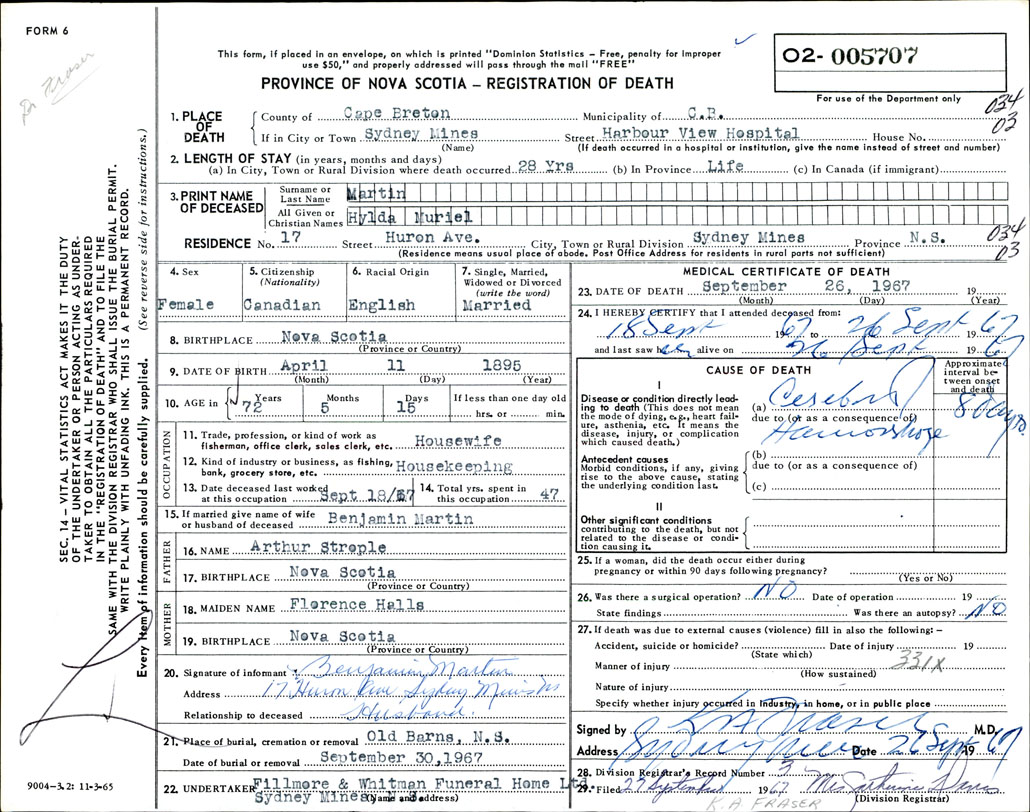 FORM 6
Dr Fraser
This form, if placed in an envelope, on which is printed "Dominion Statistics – Free, penalty for improper
use $50," and properly addressed will pass through the mail "FREE"
PROVINCE OF NOVA SCOTIA – REGISTRATION OF DEATH
O2- 005707
For use of the Department only
034
03
1. PLACE OF DEATH
County of Cape Breton Municipality of C.B.
If in City or Town Sydney Mines Street Harbour View Hospital House No.
(Name) (If death occurred in a hospital or institution, give the name instead of street and number)
2. LENGTH OF STAY (in years, months and days)
(a) In City, Town or Rural Division where death occurred 28 Yrs (b) In Province Life (c) In Canada (if immigrant)
3. PRINT NAME OF DECEASED
Surname or Last Name Martin
All Given or Christian Names Hylda Muriel
RESIDENCE No. 17 Street Huron Ave. City, Town or Rural Division Sydney Mines Province N.S.
(Residence means usual place of abode. Post Office Address for residents in rural parts not sufficient)
034
03
4. Sex
Female
5. Citizenship
(Nationality)
Canadian
6. Racial Origin
English
7. Single, Married,
Widowed or Divorced
(write the word)
Married
8. BIRTHPLACE Nova Scotia
(Province or Country)
9. DATE OF BIRTH April 11 1895
(Month) (Day) (Year)
10. AGE in Years Months Days If less than one day old
72 5 15 hrs. or min.
OCCUPATION
11. Trade, profession, or kind of work as
fisherman, office clerk, sales clerk, etc. Housewife
12. Kind of industry or business, as fishing,
bank, grocery store, etc. Housekeeping
13. Date deceased last worked
at this occupation Sept 18/67
14. Total yrs. spent in
this occupation 47
15. If married give name of wife
or husband of deceased Benjamin Martin
FATHER
16. NAME Arthur Strople
17. BIRTHPLACE Nova Scotia
(Province or Country)
MOTHER
18. MAIDEN NAME Florence Halls
19. BIRTHPLACE Nova Scotia
(Province or Country)
20. Signature of informant Benjamin Martin
Address 17 Huron Ave Sydney Mines NS
Relationship to deceased Husband.
21. Place of burial, cremation or removal Old Barns, N.S.
Date of burial or removal September 30,1967
22. UNDERTAKER Fillmore & Whitman Funeral Home Ltd
Sydney Mines N S
(Name and address)
MEDICAL CERTIFICATE OF DEATH
23. DATE OF DEATH September 26, 1967 19
(Month) (Day) (Year)
24. I HEREBY CERTIFY that I attended deceased from:
18 Sept 1967 to 26 Sept 1967
and last saw her alive on 26 Sept 1967
CAUSE OF DEATH
Approximate interval between onset and death
I
Disease or condition directly leading to death (This does not mean the mode of dying, e.g., heart failure, asthenia, etc. It means the disease, injury, or complication which caused death.)
(a) Cerebral
due to (or as a consequence of)
Hamorrhage
8 days
Antecedent causes
Morbid conditions, if any, giving rise to the above cause, stating the underlying condition last.
(b)
due to (or as a consequence of)
(c)
II
Other significant conditions
contributing to the death, but not related to the disease or condition causing it.
25. If a woman, did the death occur either during
pregnancy or within 90 days following pregnancy?
(Yes or No)
26. Was there a surgical operation? NO Date of operation 19
State findings Was there an autopsy? NO
27. If death was due to external causes (violence) fill in also the following: –
Accident, suicide or homicide? Date of injury 19
(State which)
331X
Manner of injury
(How sustained)
Nature of injury
Specify whether injury occurred in Industry, in home, or in public place
Signed by K A Fraser M.D.
Address Sydney Mines Date 26 Sept 1967
28. Division Registrar's Record Number 3
29. Filed 27 September 1967 Mrs Catherine Davis
(Division Registrar)
K. A FRASER
SEC. 14 – VITAL STATISTICS ACT MAKES IT THE DUTY
OF THE UNDERTAKER OR PERSON ACTING AS UNDERTAKER TO OBTAIN ALL THE PARTICULARS REQUIRED
IN THE "REGISTRATION OF DEATH" AND TO FILE THE
SAME WITH THE DIVISION REGISTRAR WHO SHALL ISSUE THE BURIAL PERMIT.
WRITE PLAINLY WITH UNFADING INK. THIS IS A PERMANENT RECORD.
Every item of information should be carefully supplied. (See reverse side for instructions.)
9004-3.2: 11-3-65